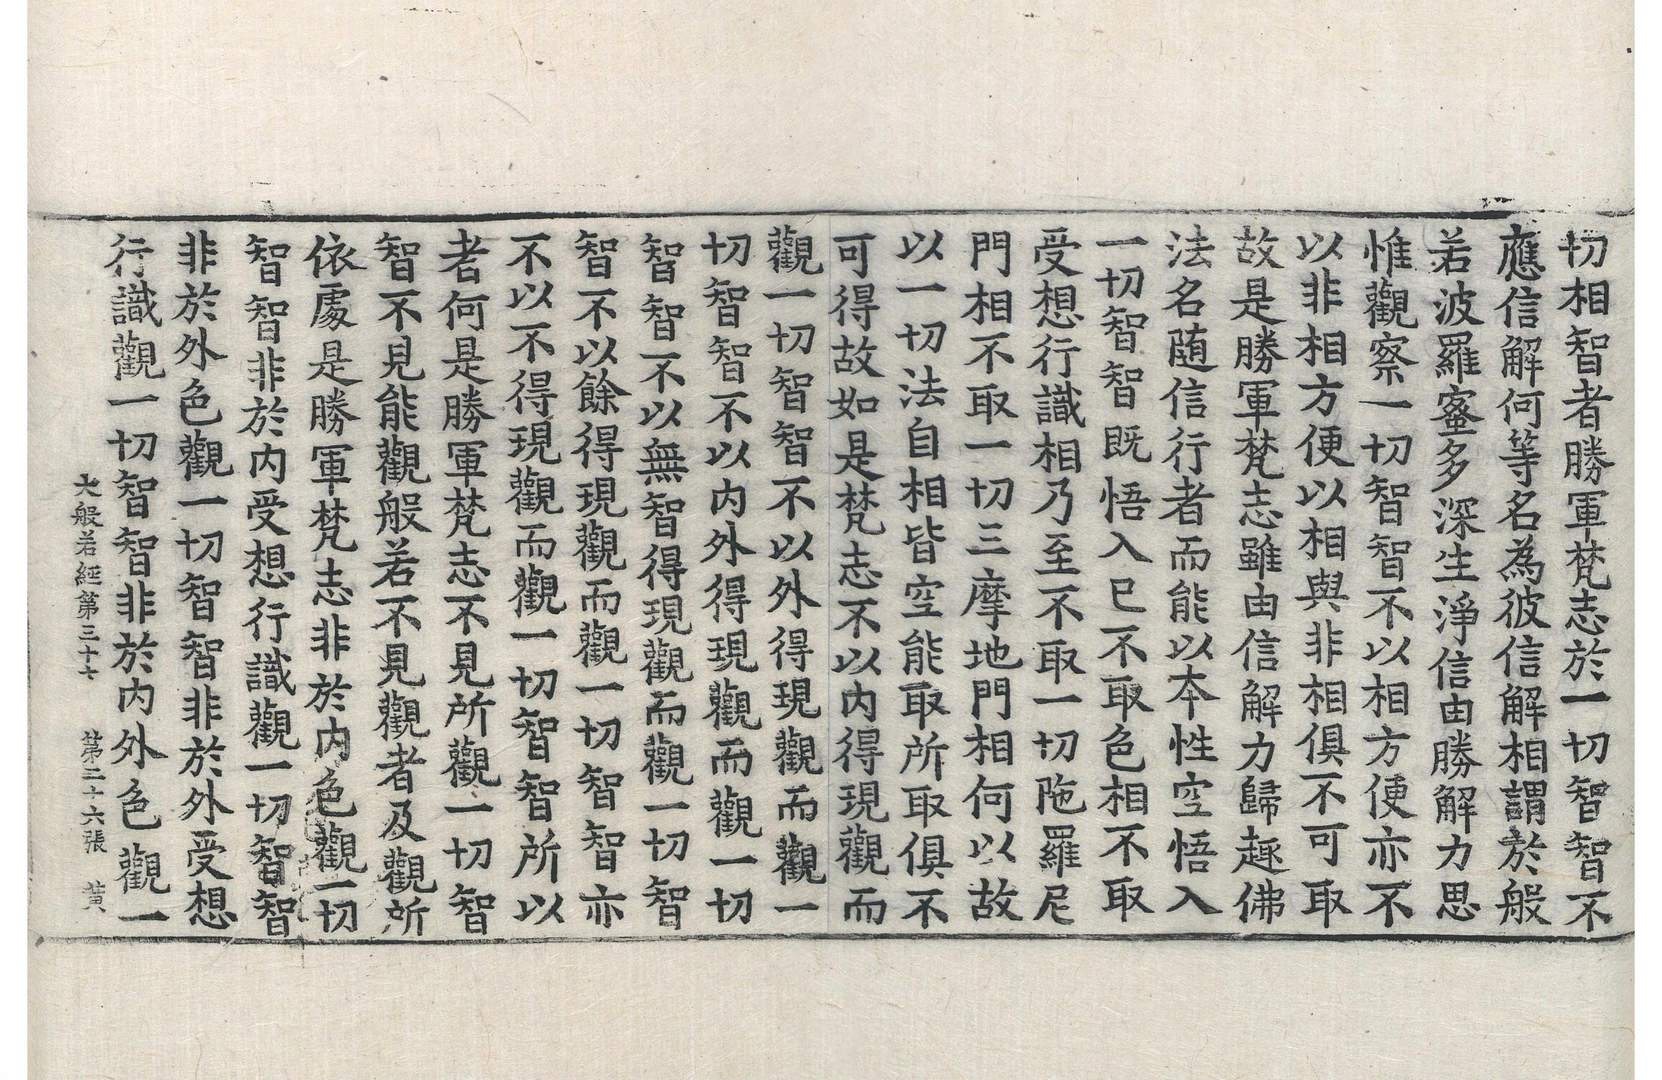 切相智者勝軍梵志於一切智智不
應信解何等名為彼信解相謂於般
若波羅蜜多深生淨信由勝解力思
惟觀察一切智智不以相方便亦不
以非相方便以相與非相俱不可取
故是勝軍梵志雖由信解力歸趣佛
法名随信行者而能以本性空悟入
一切智智既悟入已不取色相不取
受想行識相乃至不取一切陁羅尼
門相不取一切三摩地門相何以故
以一切法自相皆空能取所取俱不
可得故如是梵志不以内得現觀而
觀一切智智不以外得現觀而觀一
切智智不以内外得現觀而觀一切
智智不以無智得現觀而觀一切智
智不以餘得現觀而觀一切智智亦
不以不得現觀而觀一切智智所以
者何是勝軍梵志不見所觀一切智
智不見能觀般若不見觀者及觀所
依處是勝軍梵志非於内色觀一切
智智非於内受想行識觀一切智智
非於外色觀一切智智非於外受想
行識觀一切智智非於内外色觀一
大般若經第三十七 第二十六張 黃